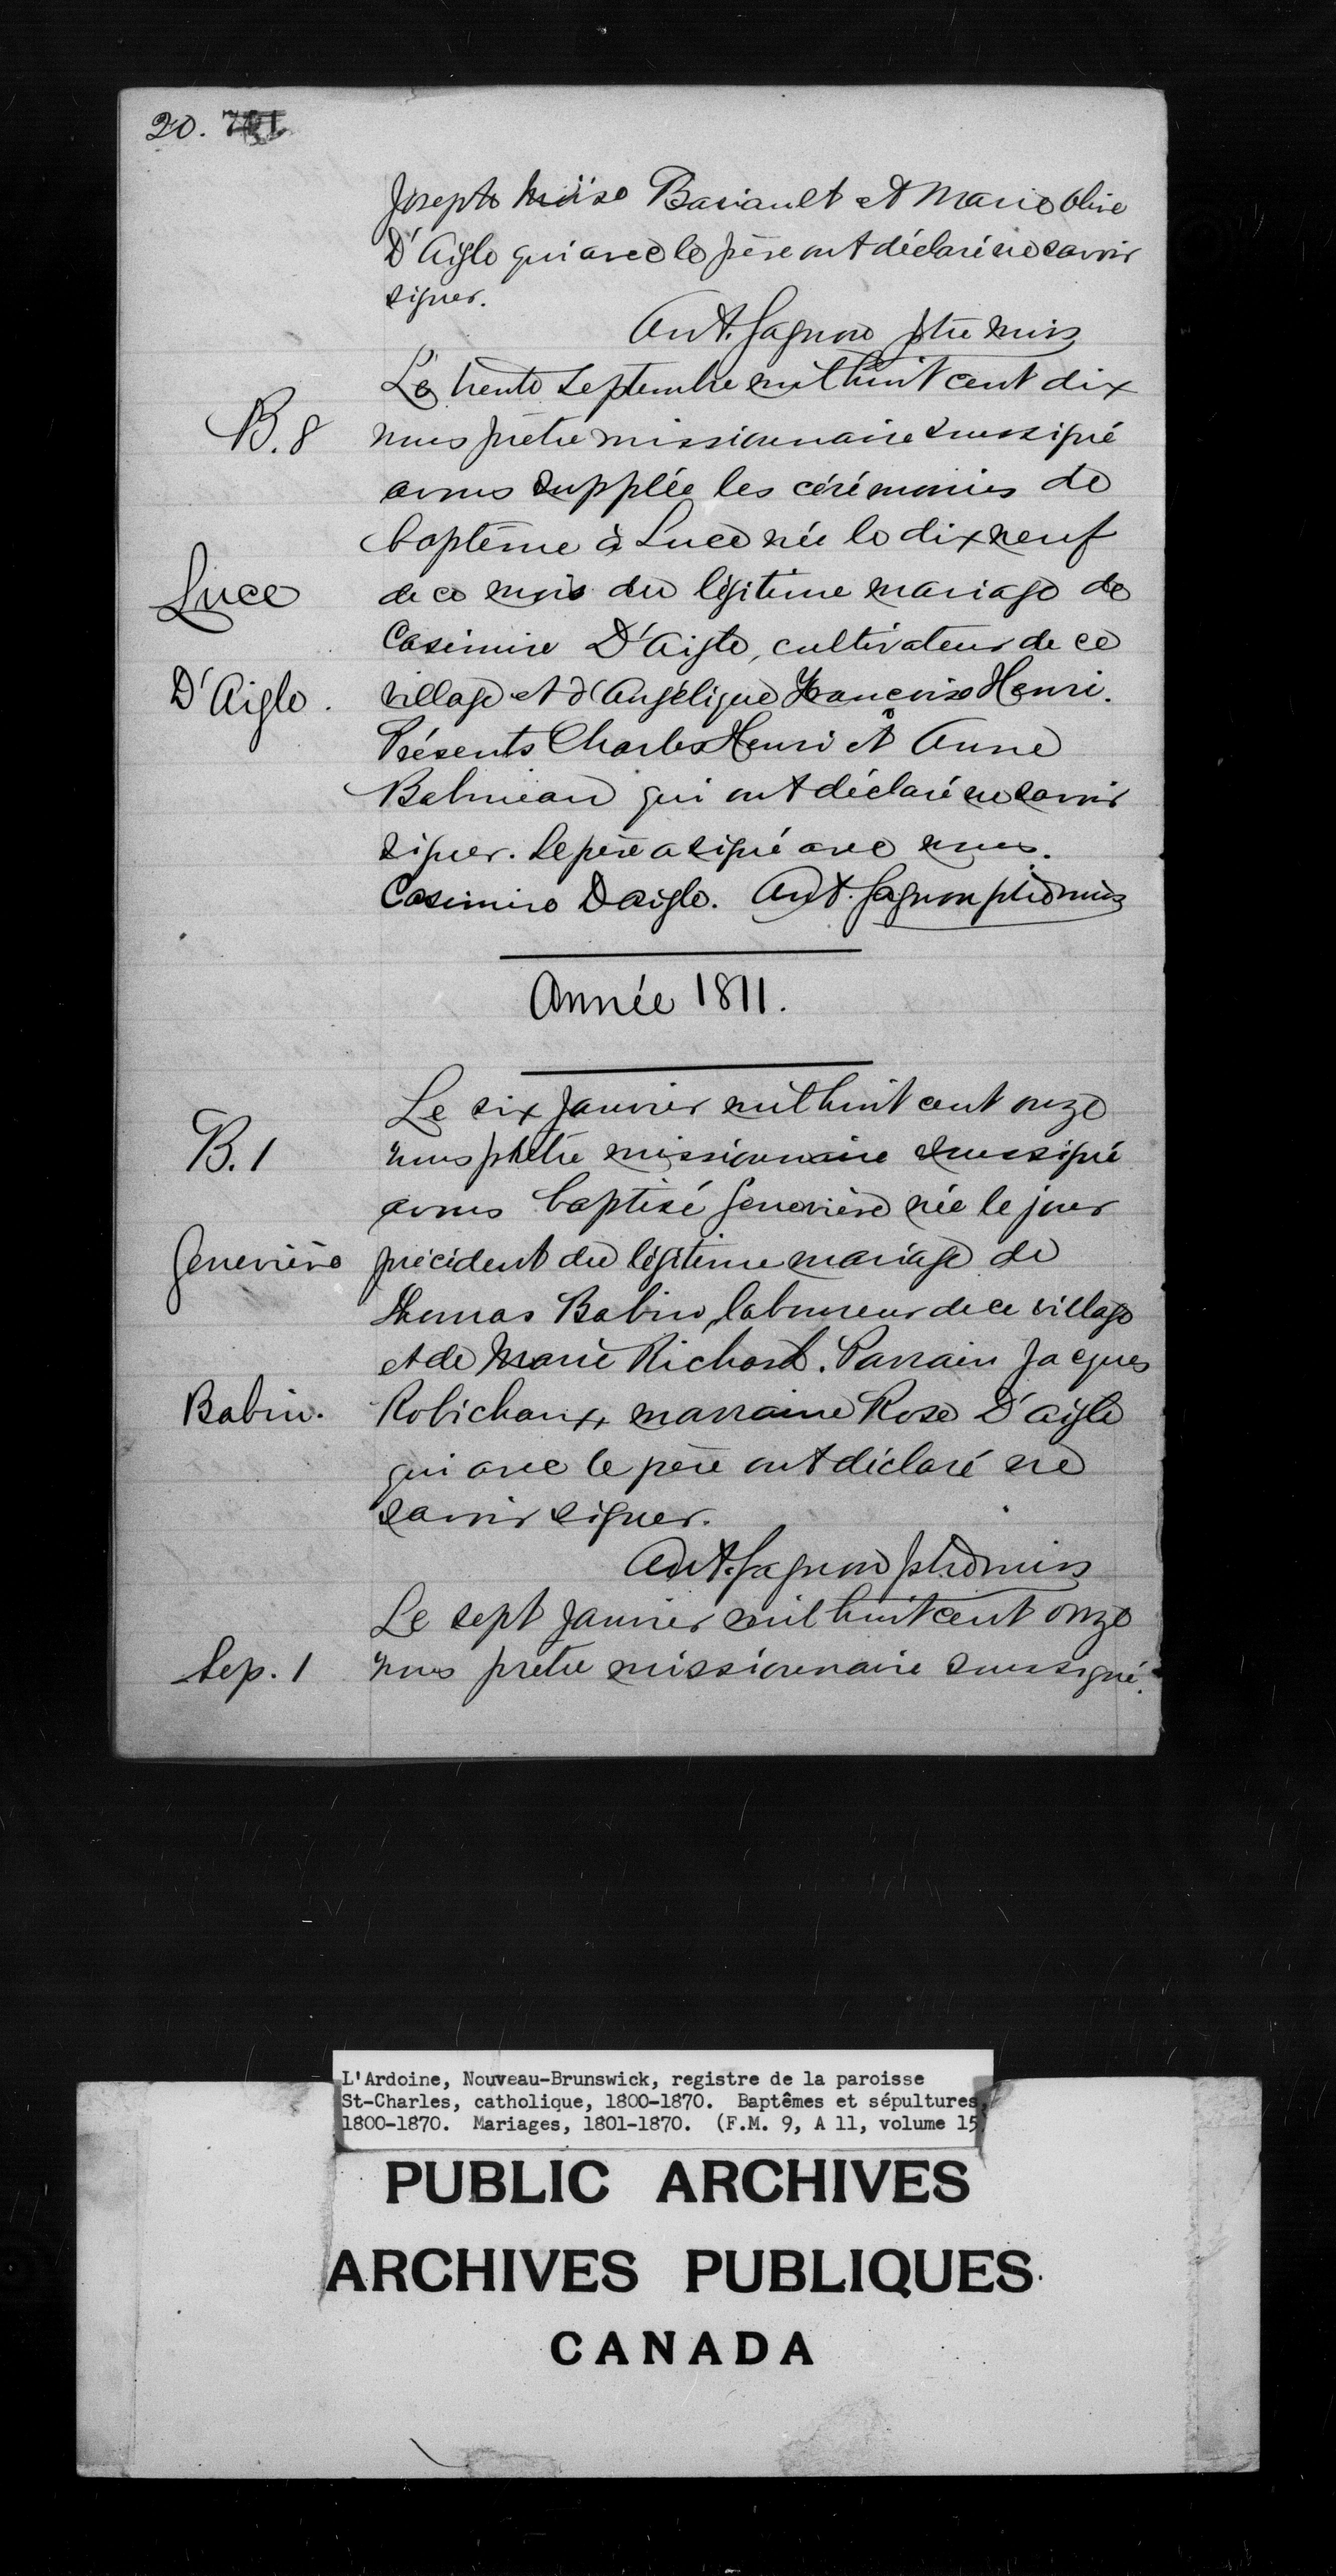 20.
Joseph Moïse Bariault et Marie Olive
D'Aigle qui avec le père ont déclaré ne savoir
signer.
Ant. Gagnon ptre miss
Le trente Septembre mil huit cent dix
B. 8
nous prêtre missionnaire soussigné
avons supplée les cérémonies de
baptême à Luce née le dix neuf
Luce
de ce mois du légitime mariage de
Casimire D'Aigle, cultivateur de ce
D'Aigle.
village et d'Angélique Françoise Henri.
Présents Charles Henri et Anne
qui ont déclaré ne savoir
signer. Le père a signé avec nous.
Casimire Daigle. Ant. Gagnon ptre miss
Année 1811.
Le six Janvier mil huit cent onze
B. 1
nous prêtre missionnaire soussigné
avons baptisé Geneviève née le jour
Geneviève
précédent du légitime mariage de
Thomas Babin, laboureur de ce village
et de Marie Richard. Parrain Jacques
Babin.
Robichaux, marraine Rose D'aigle
qui avec le père ont déclaré ne
savoir signer.
Ant. Gagnon ptre miss
Le sept Janvier mil huit cent onze
Sep. 1
nous prêtre missionnaire soussigné
L'Ardoine, Nouveau-Brunswick, registre de la paroisse
St-Charles, catholique, 1800-1870. Baptêmes et sépultures,
1800-1870. Mariages, 1801-1870. (F.M. 9, A 11, volume 15)
PUBLIC ARCHIVES
ARCHIVES PUBLIQUES
CANADA